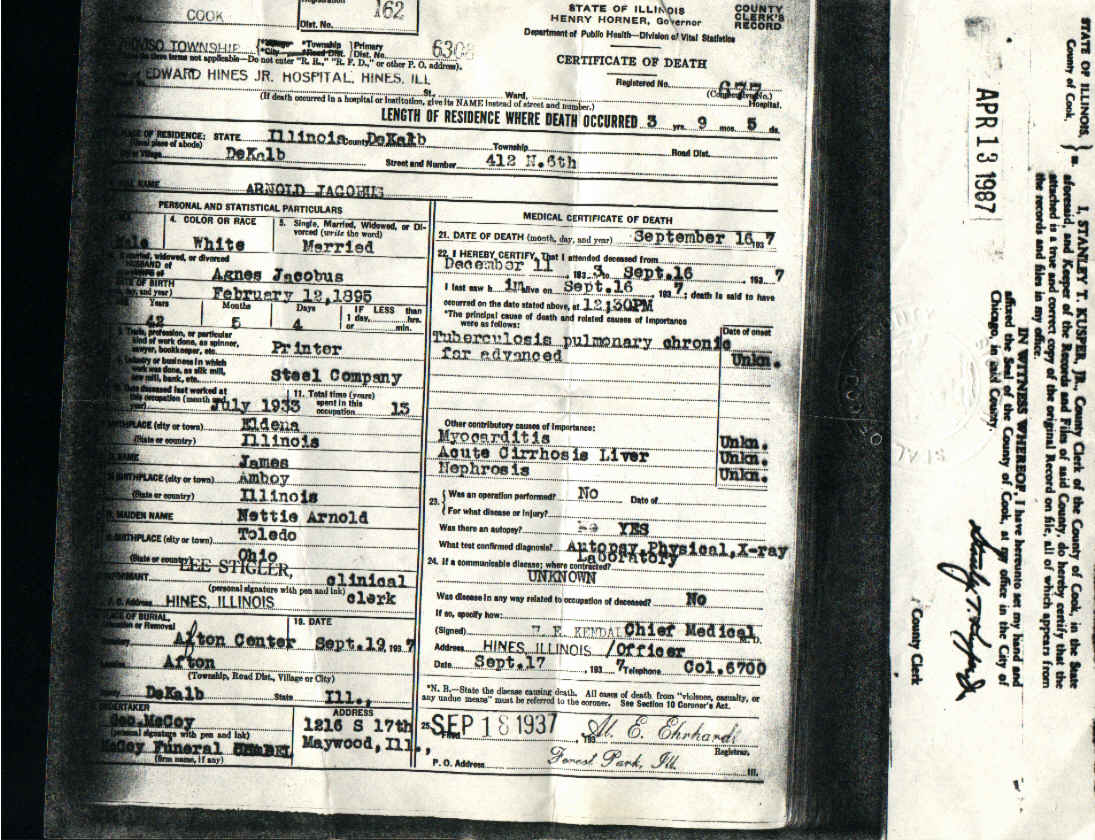 COOK
Dist. No.
162
STATE OF ILLINOIS
HENRY HORNER, Governor
Department of Public Health—Division of Vital Statistics
COUNTY
CLERK'S
RECORD
TOWNSHIP
*Township
*Road Dist.
Primary
Dist. No.
6308
CERTIFICATE OF DEATH
three terms not applicable—Do not enter "R. R.," "R. F. D.," or other P. O. address).
EDWARD HINES JR. HOSPITAL, HINES, ILL
Registered No. 677
(Consecutive No.)
St., Ward, Hospital.
(If death occurred in a hospital or institution, give its NAME instead of street and number.)
LENGTH OF RESIDENCE WHERE DEATH OCCURRED 3 yrs. 9 mos. 5 ds.
PLACE OF RESIDENCE: STATE Illinois County DeKalb
(Usual place of abode) Township Road Dist.
Village DeKalb Street and Number 412 N. 6th
NAME ARNOLD JACOBUS
PERSONAL AND STATISTICAL PARTICULARS
4. COLOR OR RACE
5. Single, Married, Widowed, or Divorced (write the word)
Male White Married
married, widowed, or divorced
HUSBAND of
Agnes Jacobus
DATE OF BIRTH
day, and year) February 12, 1895
Years Months Days IF LESS than
1 day, hrs.
or min.
42 5 4
Trade, profession, or particular
kind of work done, as spinner,
sawyer, bookkeeper, etc. Printer
Industry or business in which
work was done, as silk mill,
saw mill, bank, etc. Steel Company
Date deceased last worked at
this occupation (month and
year) July 1933
11. Total time (years)
spent in this
occupation 13
BIRTHPLACE (city or town) Eldena
(State or country) Illinois
NAME James
BIRTHPLACE (city or town) Amboy
(State or country) Illinois
MAIDEN NAME Nettie Arnold
BIRTHPLACE (city or town) Toledo
(State or country) Ohio
LEE STIGLER, clinical
INFORMANT
(personal signature with pen and ink)
P. O. Address HINES, ILLINOIS clerk
PLACE OF BURIAL,
Cremation or Removal
19. DATE
Afton Center Sept. 19, 1937
Afton
(Township, Road Dist., Village or City)
County DeKalb State Ill.,
UNDERTAKER ADDRESS
Geo. McCoy 1216 S 17th
(personal signature with pen and ink)
McCoy Funeral Maywood, Ill.,
(firm name, if any)
MEDICAL CERTIFICATE OF DEATH
21. DATE OF DEATH (month, day, and year) September 16, 1937
22. I HEREBY CERTIFY, That I attended deceased from
December 11 193 3 to Sept. 16, 193 7
I last saw h im alive on Sept. 16 193 7; death is said to have
occurred on the date stated above, at 12:30PM
*The principal cause of death and related causes of importance
were as follows:
Date of onset
Tuberculosis pulmonary chronic
far advanced Unkn.
Other contributory causes of importance:
Myocarditis Unkn.
Acute Cirrhosis Liver Unkn.
Nephrosis Unkn.
23. Was an operation performed? No Date of
For what disease or injury?
Was there an autopsy? YES
What test confirmed diagnosis? Autopsy, Physical, X-ray
Laboratory
24. If a communicable disease; where contracted?
UNKNOWN
Was disease in any way related to occupation of deceased? No
If so, specify how:
(Signed) KENDALL Chief Medical M. D.
Address HINES, ILLINOIS /Officer
Date Sept. 17, 193 7 Telephone Col. 6700
*N. B.—State the disease causing death. All cases of death from "violence, casualty, or
any undue means" must be referred to the coroner. See Section 10 Coroner's Act.
25. Filed SEP 18 1937, 193 Al. E. Ehrhardt
Registrar.
P. O. Address Forest Park, Ill. Ill.
STATE OF ILLINOIS,
County of Cook.
ss.
I, STANLEY T. KUSPER, JR., County Clerk of the County of Cook, in the State
aforesaid, and Keeper of the Records and Files of said County, do hereby certify that the
attached is a true and correct copy of the original Record on file, all of which appears from
the records and files in my office.
IN WITNESS WHEREOF, I have hereunto set my hand and
affixed the Seal of the County of Cook, at my office in the City of
Chicago, in said County.
APR 13 1987
Stanley T. Kusper Jr.
County Clerk